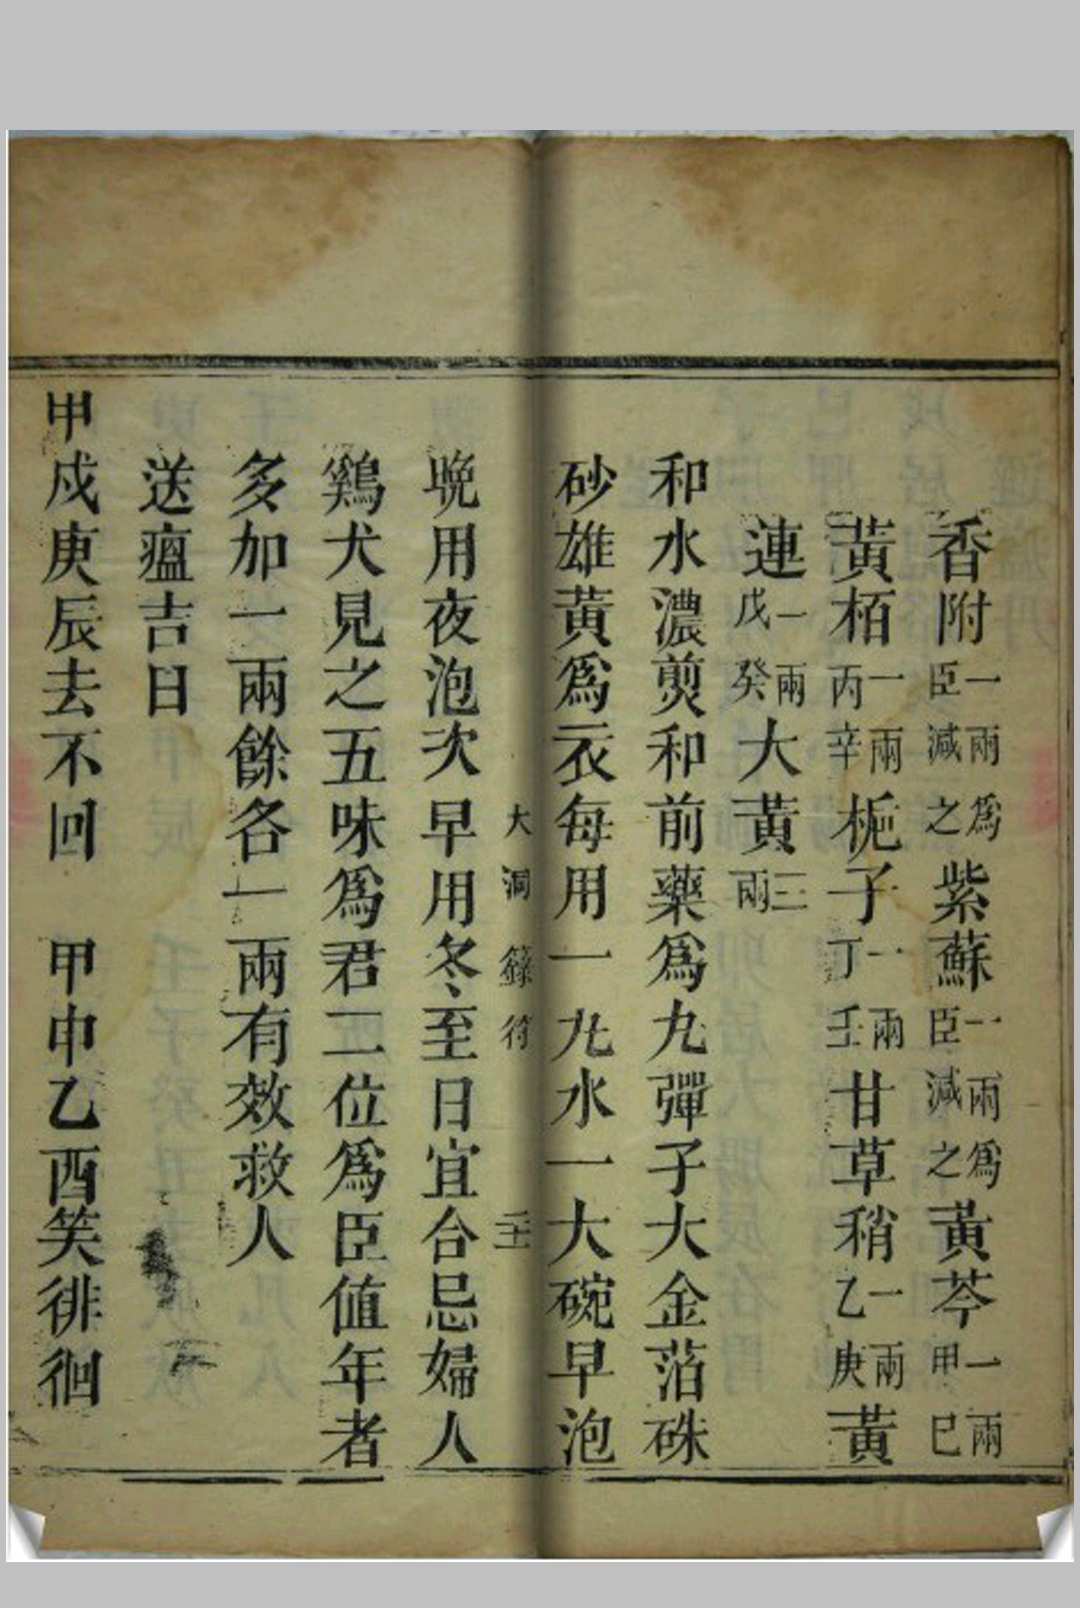 香附一兩爲臣減之紫蘇一兩爲臣減之黃芩一兩甲巳
黃栢一兩丙辛梔子一兩丁壬甘草稍一兩乙庚黃
連一兩戊癸大黃三兩
和水濃煎和前藥爲丸彈子大金萡硃
砂雄黃爲衣每用一丸水一大碗早泡
大洞籙符
晚用夜泡次早用冬至日宜合忌婦人
鷄犬見之五味爲君二位爲臣值年者
多加一兩餘各一兩有效救人
送瘟吉日
甲戍庚辰去不回 甲申乙酉笑徘徊